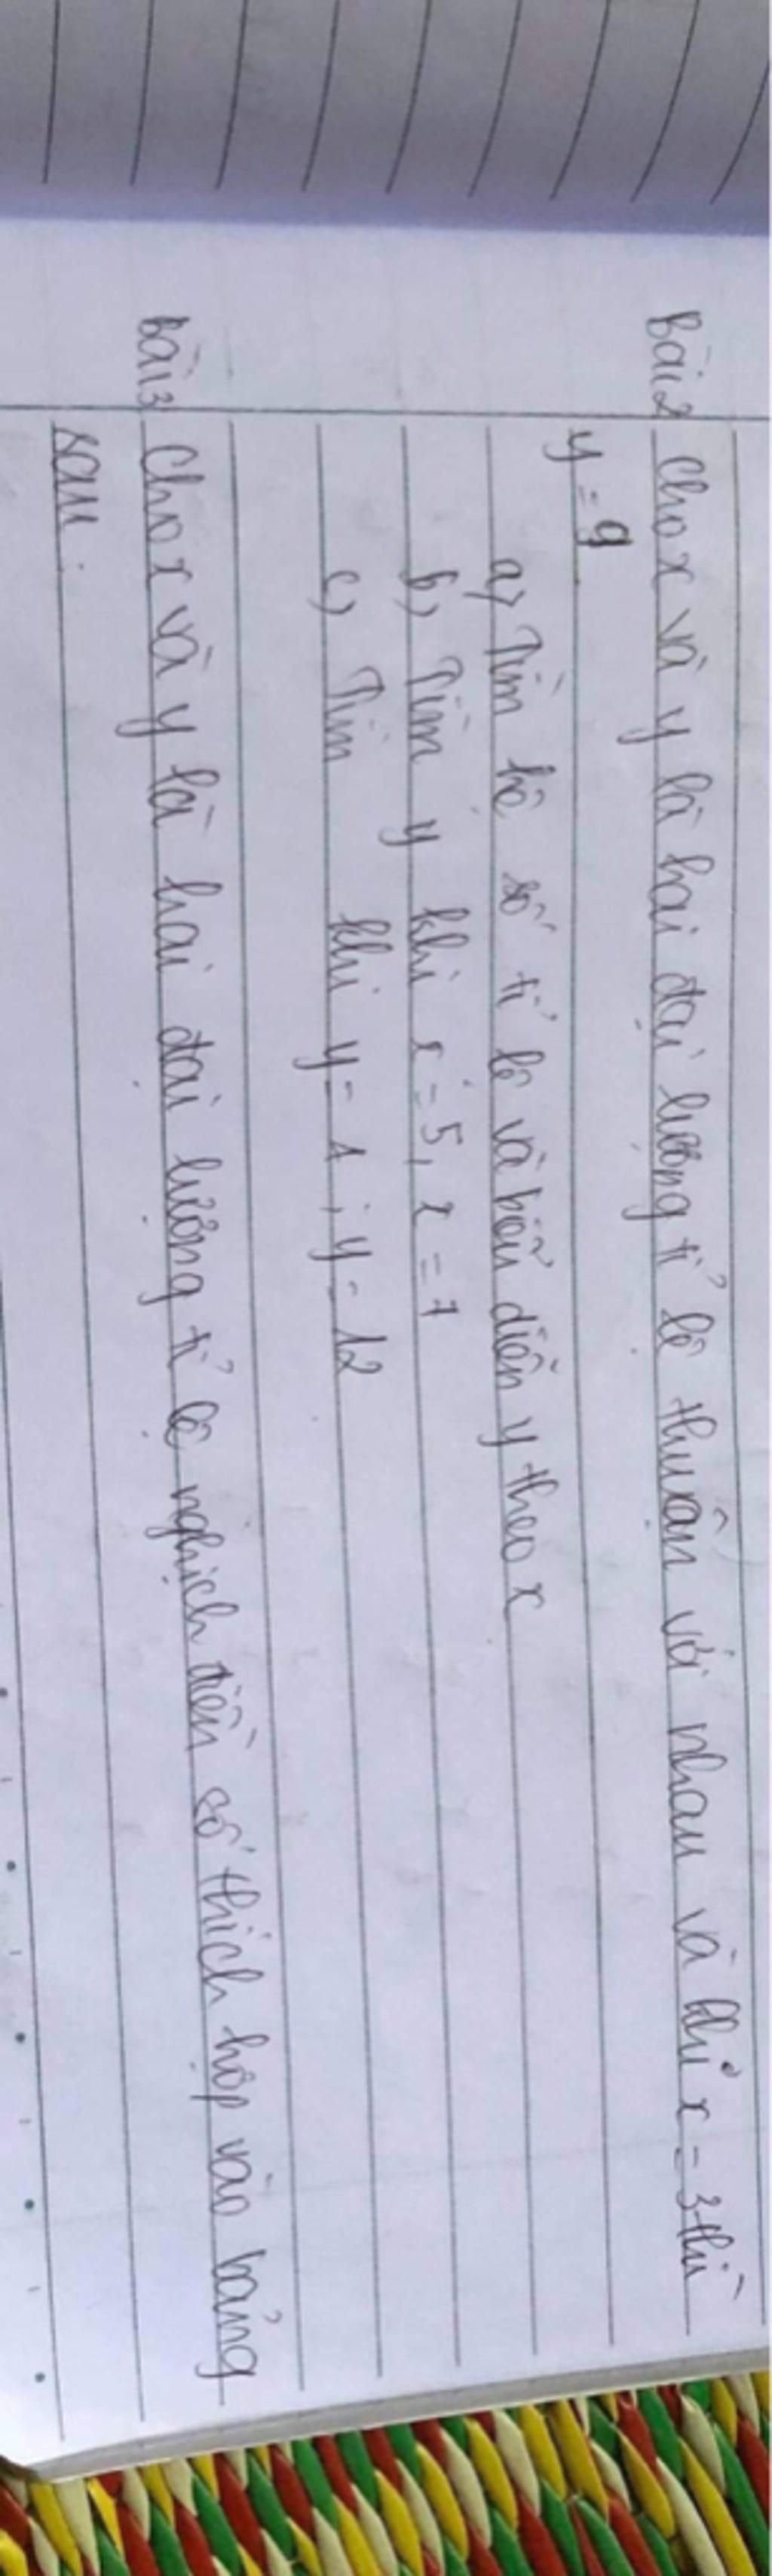 Bài 2 Cho x và y là hai đại lượng tỉ lệ thuận với nhau và khi x = 3 thì
y = 9
a, Tìm hê số tỉ lê và biểu diễn y theo x
b, Tìm y khi x = 5, x = 7
c, Tìm khi y = 1 ; y = 12
Bài 3 Cho x và y là hai đại lượng tỉ lệ nghịch điền số thích hợp vào bảng
sau :